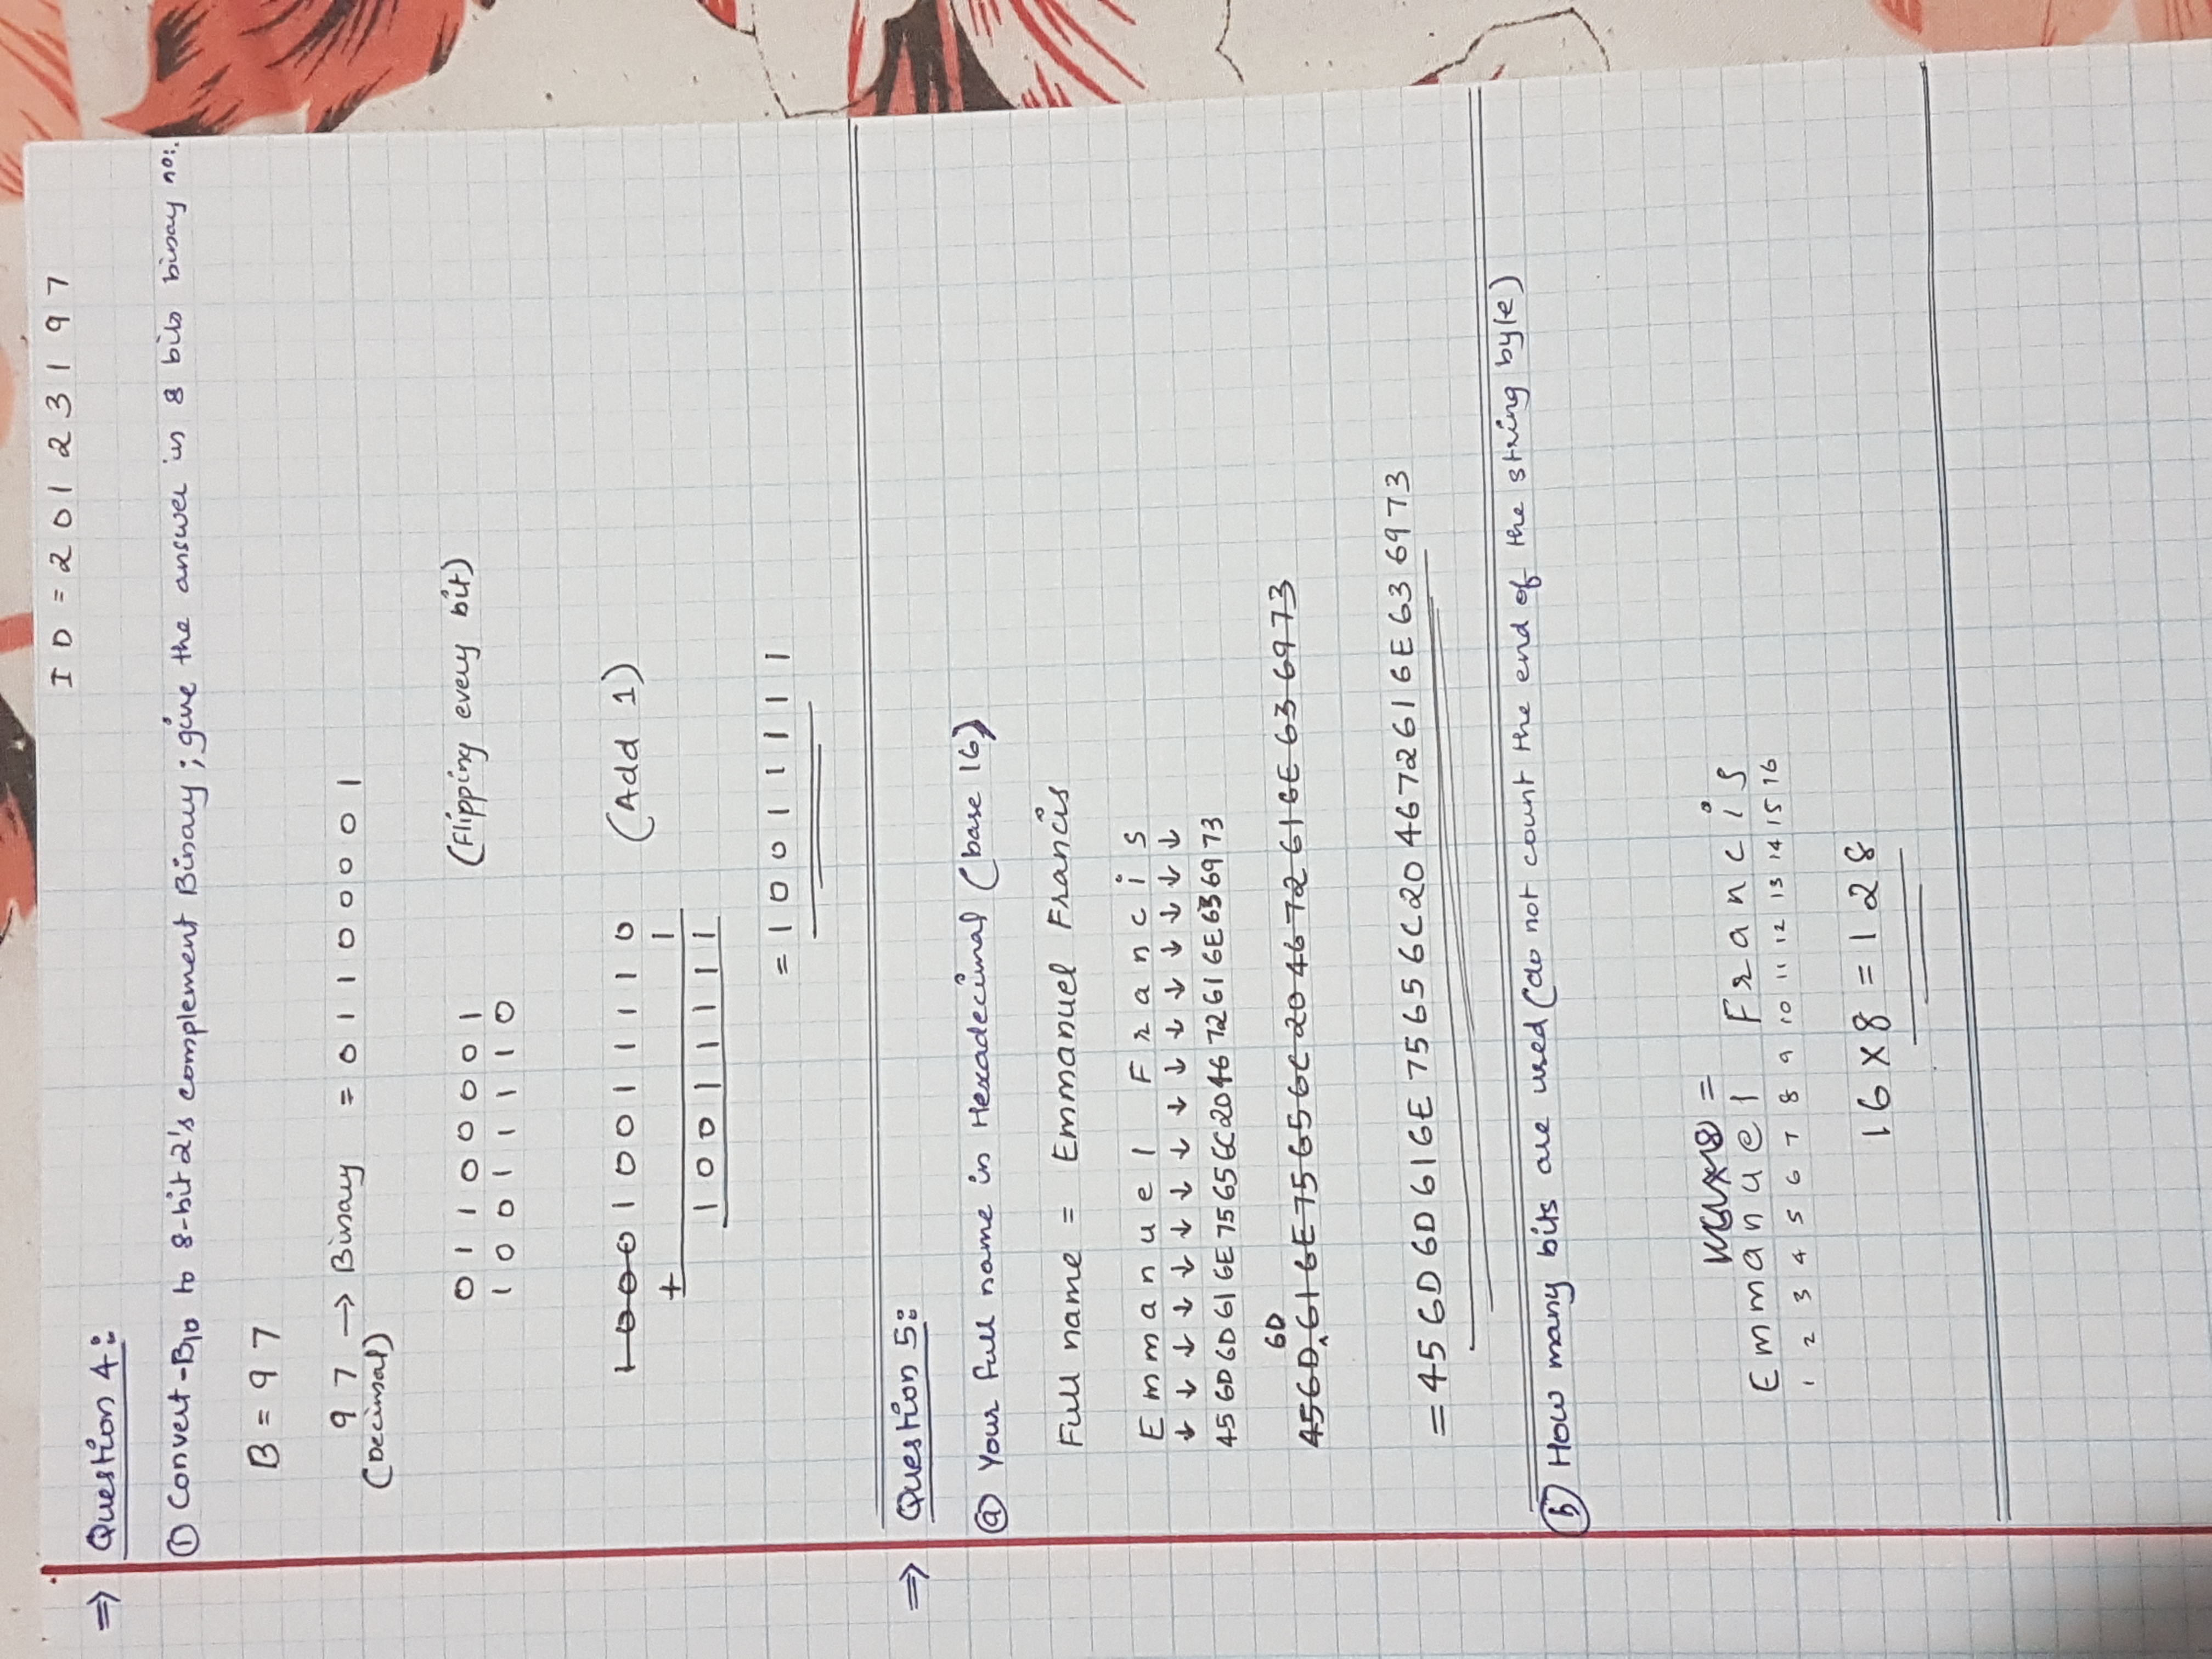 ID = 20123197
⇒ Question 4:
① Convert -B₁₀ to 8-bit 2's complement Binary; give the answer in 8 bits binay no:.
B = 97
97 → Binary = 01100001
(Decimal)
01100001 (Flipping every bit)
10011110
1000010011110 (Add 1)
+ 1
10011111
= 10011111
⇒ Question 5:
ⓐ Your full name in Hexadecimal (base 16)
Full name = Emmanuel Francis
Emmanuel Francis
↓ ↓ ↓ ↓ ↓ ↓ ↓ ↓ ↓ ↓ ↓ ↓ ↓ ↓ ↓ ↓
45 6D 6D 61 6E 75 65 6C 20 46 72 61 6E 63 69 73
6D
45 6D ‸ 61 6E 75 65 6C 20 46 72 61 6E 63 69 73
= 45 6D 6D 61 6E 75 65 6C 20 46 72 61 6E 63 69 73
ⓑ How many bits are used (do not count the end of the string byte)
=
Emmanuel Francis
1 2 3 4 5 6 7 8 9 10 11 12 13 14 15 16
16 × 8 = 128